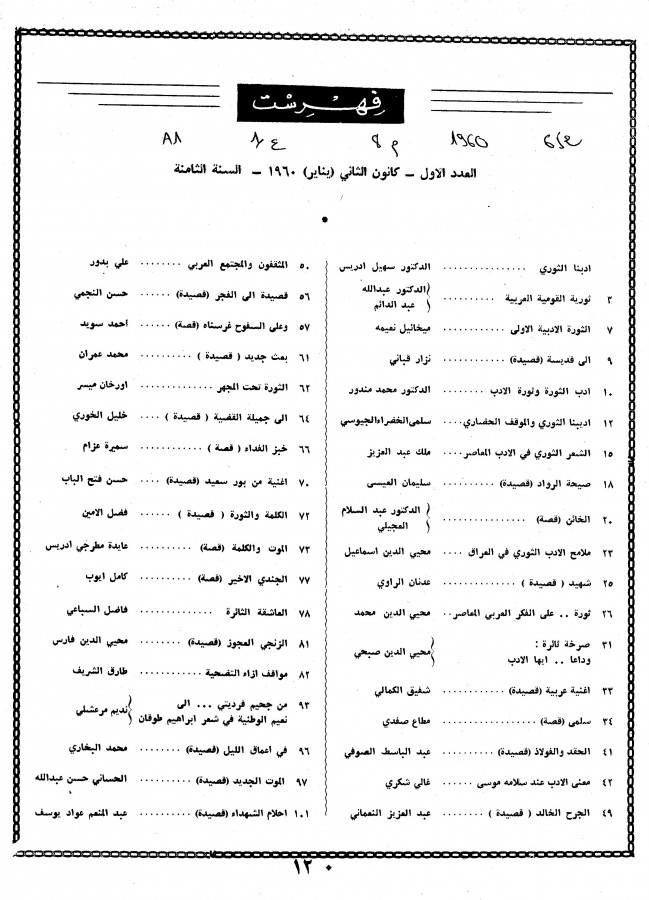 فهرست
A1 ع 1 م 8 1960
العدد الاول - كانون الثاني (يناير) ١٩٦٠ - السنة الثامنة
ادبنا الثوري ............... الدكتور سهيل ادريس
٣ ثورية القومية العربية .......... الدكتور عبدالله عبد الدائم
٧ الثورة الادبية الاولى ........ ميخائيل نعيمه
٩ الى قديسة (قصيدة) ......... نزار قباني
١٠ ادب الثورة وثورة الادب ........ الدكتور محمد مندور
١٢ اديبنا الثوري والموقف الحضاري .... سلمى الخضراء الجيوسي
١٥ الشعر الثوري في الادب المعاصر .... ملك عبد العزيز
١٨ صيحة الرواد (قصيدة) ......... سليمان العيسى
٢٠ الخائن (قصة) ............. الدكتور عبد السلام العجيلي
٢٣ ملامح الادب الثوري في العراق .... محيي الدين اسماعيل
٢٥ شهيد ( قصيدة ) ............ عدنان الراوي
٢٦ ثورة .. على الفكر العربي المعاصر .. محيي الدين محمد
٣١ صرخة ثائرة :
وداعا .. ايها الادب محيي الدين صبحي
٣٣ اغنية عربية (قصيدة) ......... شفيق الكمالي
٣٤ سلمى (قصة) ............. مطاع صفدي
٤١ الحقد والفولاذ (قصيدة) ........ عبد الباسط الصوفي
٤٢ معنى الادب عند سلامه موسى ...... غالي شكري
٤٩ الجرح الخالد ( قصيدة ) ........ عبد العزيز النعماني
٥٠ المثقفون والمجتمع العربي ........ علي بدور
٥٦ قصيدة الى الفجر (قصيدة) ....... حسن النجمي
٥٧ وعلى السفوح غرسناه (قصة) ...... احمد سويد
٦١ بعث جديد ( قصيدة ) .......... محمد عمران
٦٢ الثورة تحت المجهر ........... اورخان ميسر
٦٤ الى جميلة القضية ( قصيدة ) .... خليل الخوري
٦٦ خبز الفداء ( قصة ) ........... سميرة عزام
٧٠ اغنية من بور سعيد (قصيدة) .... حسن فتح الباب
٧٢ الكلمة والثورة ( قصيدة ) ...... فضل الامين
٧٣ الموت والكلمة (قصة) ......... عايدة مطرجي ادريس
٧٧ الجندي الاخير (قصة) ......... كامل ايوب
٧٨ العاشقة الثائرة ............ فاضل السباعي
٨١ الزنجي العجوز (قصيدة) ....... محيي الدين فارس
٨٢ مواقف ازاء التضحية ........... طارق الشريف
٩٣ من جحيم فرديتي ... الى
نعيم الوطنية في شعر ابراهيم طوقان نديم مرعشلي
٩٦ في اعماق الليل (قصيدة) ....... محمد البخاري
٩٧ الموت الجديد (قصيدة) ........ الحساني حسن عبدالله
١٠١ احلام الشهداء (قصيدة) ....... عبد المنعم عواد يوسف
١٢٠